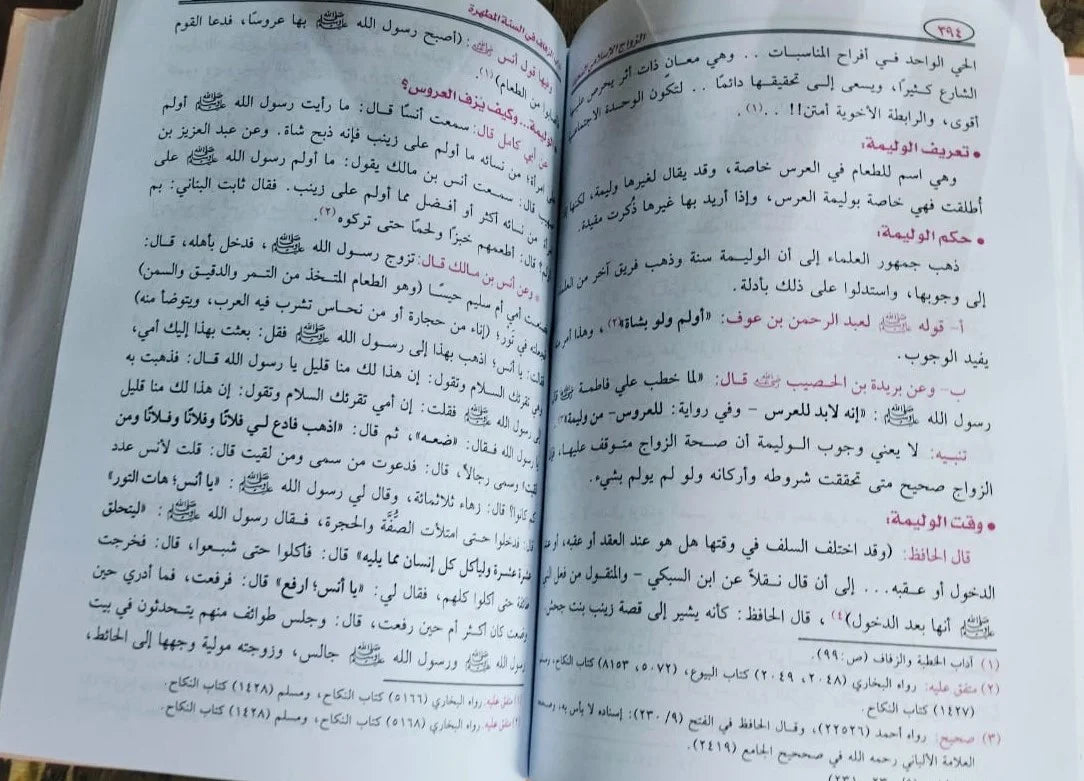 ٣٩٤
الزواج الإسلامي
الحي الواحد في أفراح المناسبات . . وهي معان ذات أثر يحرص عليها
الشارع كثيرًا، ويسعى إلى تحقيقها دائمًا . . لتكون الوحدة الاجتماعية
أقوى، والرابطة الأخوية أمتن!! . .(١).
• تعريف الوليمة:
وهي اسم للطعام في العرس خاصة، وقد يقال لغيرها وليمة، لكنها إذا
أطلقت فهي خاصة بوليمة العرس، وإذا أريد بها غيرها ذُكرت مقيدة.
• حكم الوليمة:
ذهب جمهور العلماء إلى أن الوليمة سنة وذهب فريق آخر من العلماء
إلى وجوبها، واستدلوا على ذلك بأدلة.
أ- قوله ﷺ لعبد الرحمن بن عوف: «أولم ولو بشاة»(٢)، وهذا أمر
يفيد الوجوب.
ب- وعن بريدة بن الحصيب رضي الله عنه قال: «لما خطب علي فاطمة قال
رسول الله ﷺ: «إنه لابد للعرس - وفي رواية: للعروس - من وليمة»(٣).
تنبيه: لا يعني وجوب الوليمة أن صحة الزواج متوقف عليها، فإن
الزواج صحيح متى تحققت شروطه وأركانه ولو لم يولم بشيء.
• وقت الوليمة:
قال الحافظ: (وقد اختلف السلف في وقتها هل هو عند العقد أو عقبه، أو عند
الدخول أو عقبه... إلى أن قال نقلاً عن ابن السبكي - والمنقول من فعل النبي
ﷺ أنها بعد الدخول)(٤)، قال الحافظ: كأنه يشير إلى قصة زينب بنت جحش
(١) آداب الخطبة والزفاف (ص:٩٩).
(٢) متفق عليه: رواه البخاري (٢٠٤٨، ٢٠٤٩) كتاب البيوع، (٥٠٧٢، ٨١٥٣) كتاب النكاح، ومسلم
(١٤٢٧) كتاب النكاح.
(٣) صحيح: رواه أحمد (٢٢٥٢٦)، وقال الحافظ في الفتح (٩/ ٢٣٠): إسناده لا بأس به، وصححه
العلامة الألباني رحمه الله في صحيح الجامع (٢٤١٩).
الزفاف في السنة المطهرة
وفيها قول أنس رضي الله عنه: (أصبح رسول الله ﷺ بها عروسًا، فدعا القوم
من الطعام)(١).
الوليمة... وكيف يزف العروس؟
عن أبي كامل قال: سمعت أنسًا قال: ما رأيت رسول الله ﷺ أولم
على امرأة؛ من نسائه ما أولم على زينب فإنه ذبح شاة. وعن عبد العزيز بن
صهيب قال: سمعت أنس بن مالك يقول: ما أولم رسول الله ﷺ على
امرأة من نسائه أكثر أو أفضل مما أولم على زينب. فقال ثابت البناني: بم
أولم؟ قال: أطعمهم خبزًا ولحمًا حتى تركوه(٢).
* وعن أنس بن مالك قال: تزوج رسول الله ﷺ، فدخل بأهله، قال:
فصنعت أمي أم سليم حيسًا (وهو الطعام المتخذ من التمر والدقيق والسمن)
فجعلته في تَوْر؛ (إناء من حجارة أو من نحاس تشرب فيه العرب، ويتوضأ منه)
فقالت: يا أنس؛ اذهب بهذا إلى رسول الله ﷺ فقل: بعثت بهذا إليك أمي،
وهي تقرئك السلام وتقول: إن هذا لك منا قليل يا رسول الله قال: فذهبت به
إلى رسول الله ﷺ فقلت: إن أمي تقرئك السلام وتقول: إن هذا لك منا قليل
يا رسول الله فقال: «ضعه»، ثم قال: «اذهب فادع لي فلانًا وفلانًا وفلانًا ومن
لقيت» وسمى رجالاً، قال: فدعوت من سمى ومن لقيت قال: قلت لأنس عدد
كم كانوا؟ قال: زهاء ثلاثمائة، وقال لي رسول الله ﷺ: «يا أنس؛ هات التور»
قال: فدخلوا حتى امتلأت الصُّفَّة والحجرة، فقال رسول الله ﷺ: «ليتحلق
عشرة عشرة وليأكل كل إنسان مما يليه» قال: فأكلوا حتى شبعوا، قال: فخرجت
طائفة حتى أكلوا كلهم، فقال لي: «يا أنس؛ ارفع» قال: فرفعت، فما أدري حين
وضعت كان أكثر أم حين رفعت، قال: وجلس طوائف منهم يتحدثون في بيت
رسول الله ﷺ ورسول الله ﷺ جالس، وزوجته مولية وجهها إلى الحائط،
متفق عليه: رواه البخاري (٥١٦٦) كتاب النكاح، ومسلم (١٤٢٨) كتاب النكاح.
متفق عليه: رواه البخاري (٥١٦٨) كتاب النكاح، ومسلم (١٤٢٨) كتاب النكاح.